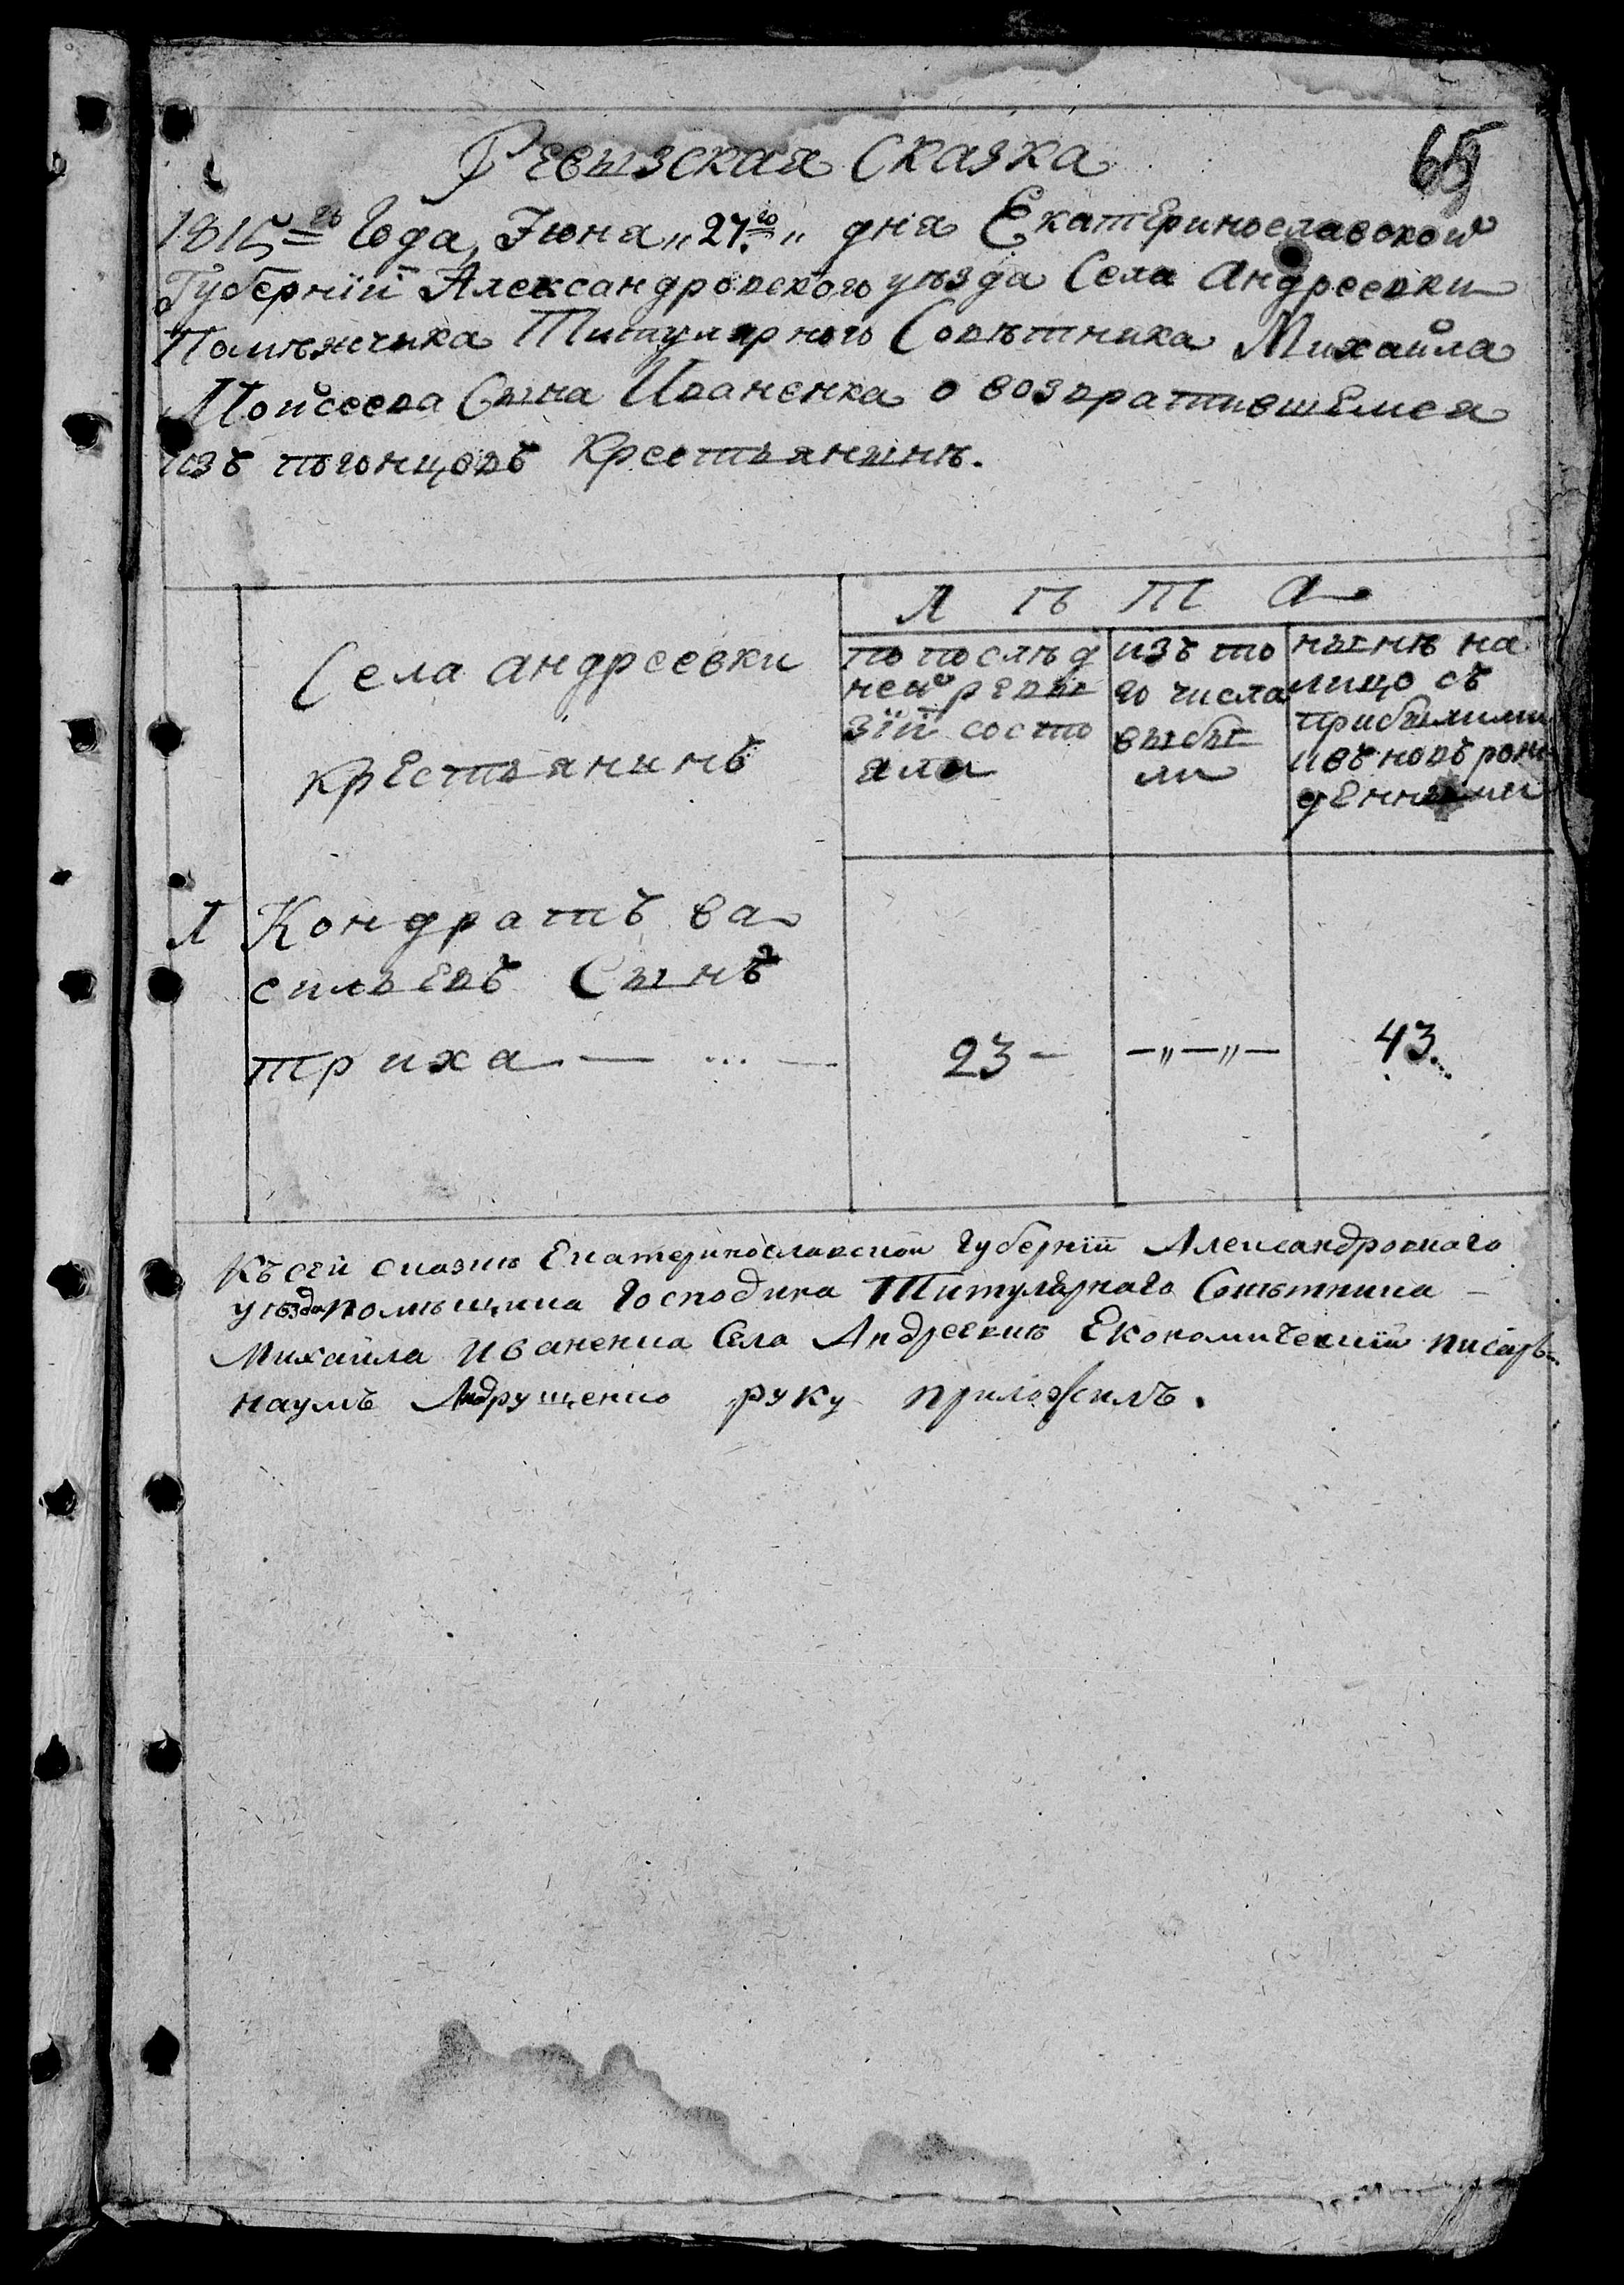 Ревызская Сказка
65
1815го Года, Июня „27го„ дня Екатеринославской
Губернїи Александровского уѣзда Села Андреевки
Помѣжчика Титулярного Совѣтника Михайла
Мойсеева Сына Иваненка о возвратившемся
изъ погонцовъ Крестьянынѣ.
Л ѣ т а
Села Андреевки
крестьянинъ
по послѣд
ней ревы
зїи состо
яли
изъ то
го числа
выбы
ли
нынѣ на
лицо съ
прибылими
и въновъ рож
денными
1 Кондратъ ва
сильевъ Сынъ
триха — ... — 23 – –„–„– 43.
Къ сей сказкѣ Екатеринославской Губернїи Александровского
уѣзда помѣщика Господина Титулярнаго Совѣтника –
Михайла Иваненка Села Андреевкиѣ Економическїй писарь
наумъ Андрущенко руку приложилъ.